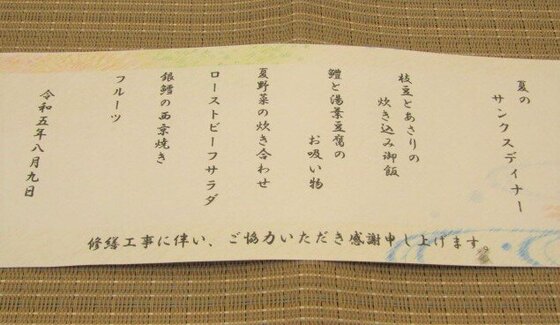 夏の
サンクスディナー
枝豆とあさりの
炊き込み御飯
鱧と湯葉豆腐の
お吸い物
夏野菜の炊き合わせ
ローストビーフサラダ
銀鱈の西京焼き
フルーツ
令和五年八月九日
修繕工事に伴い、ご協力いただき感謝申し上げます。